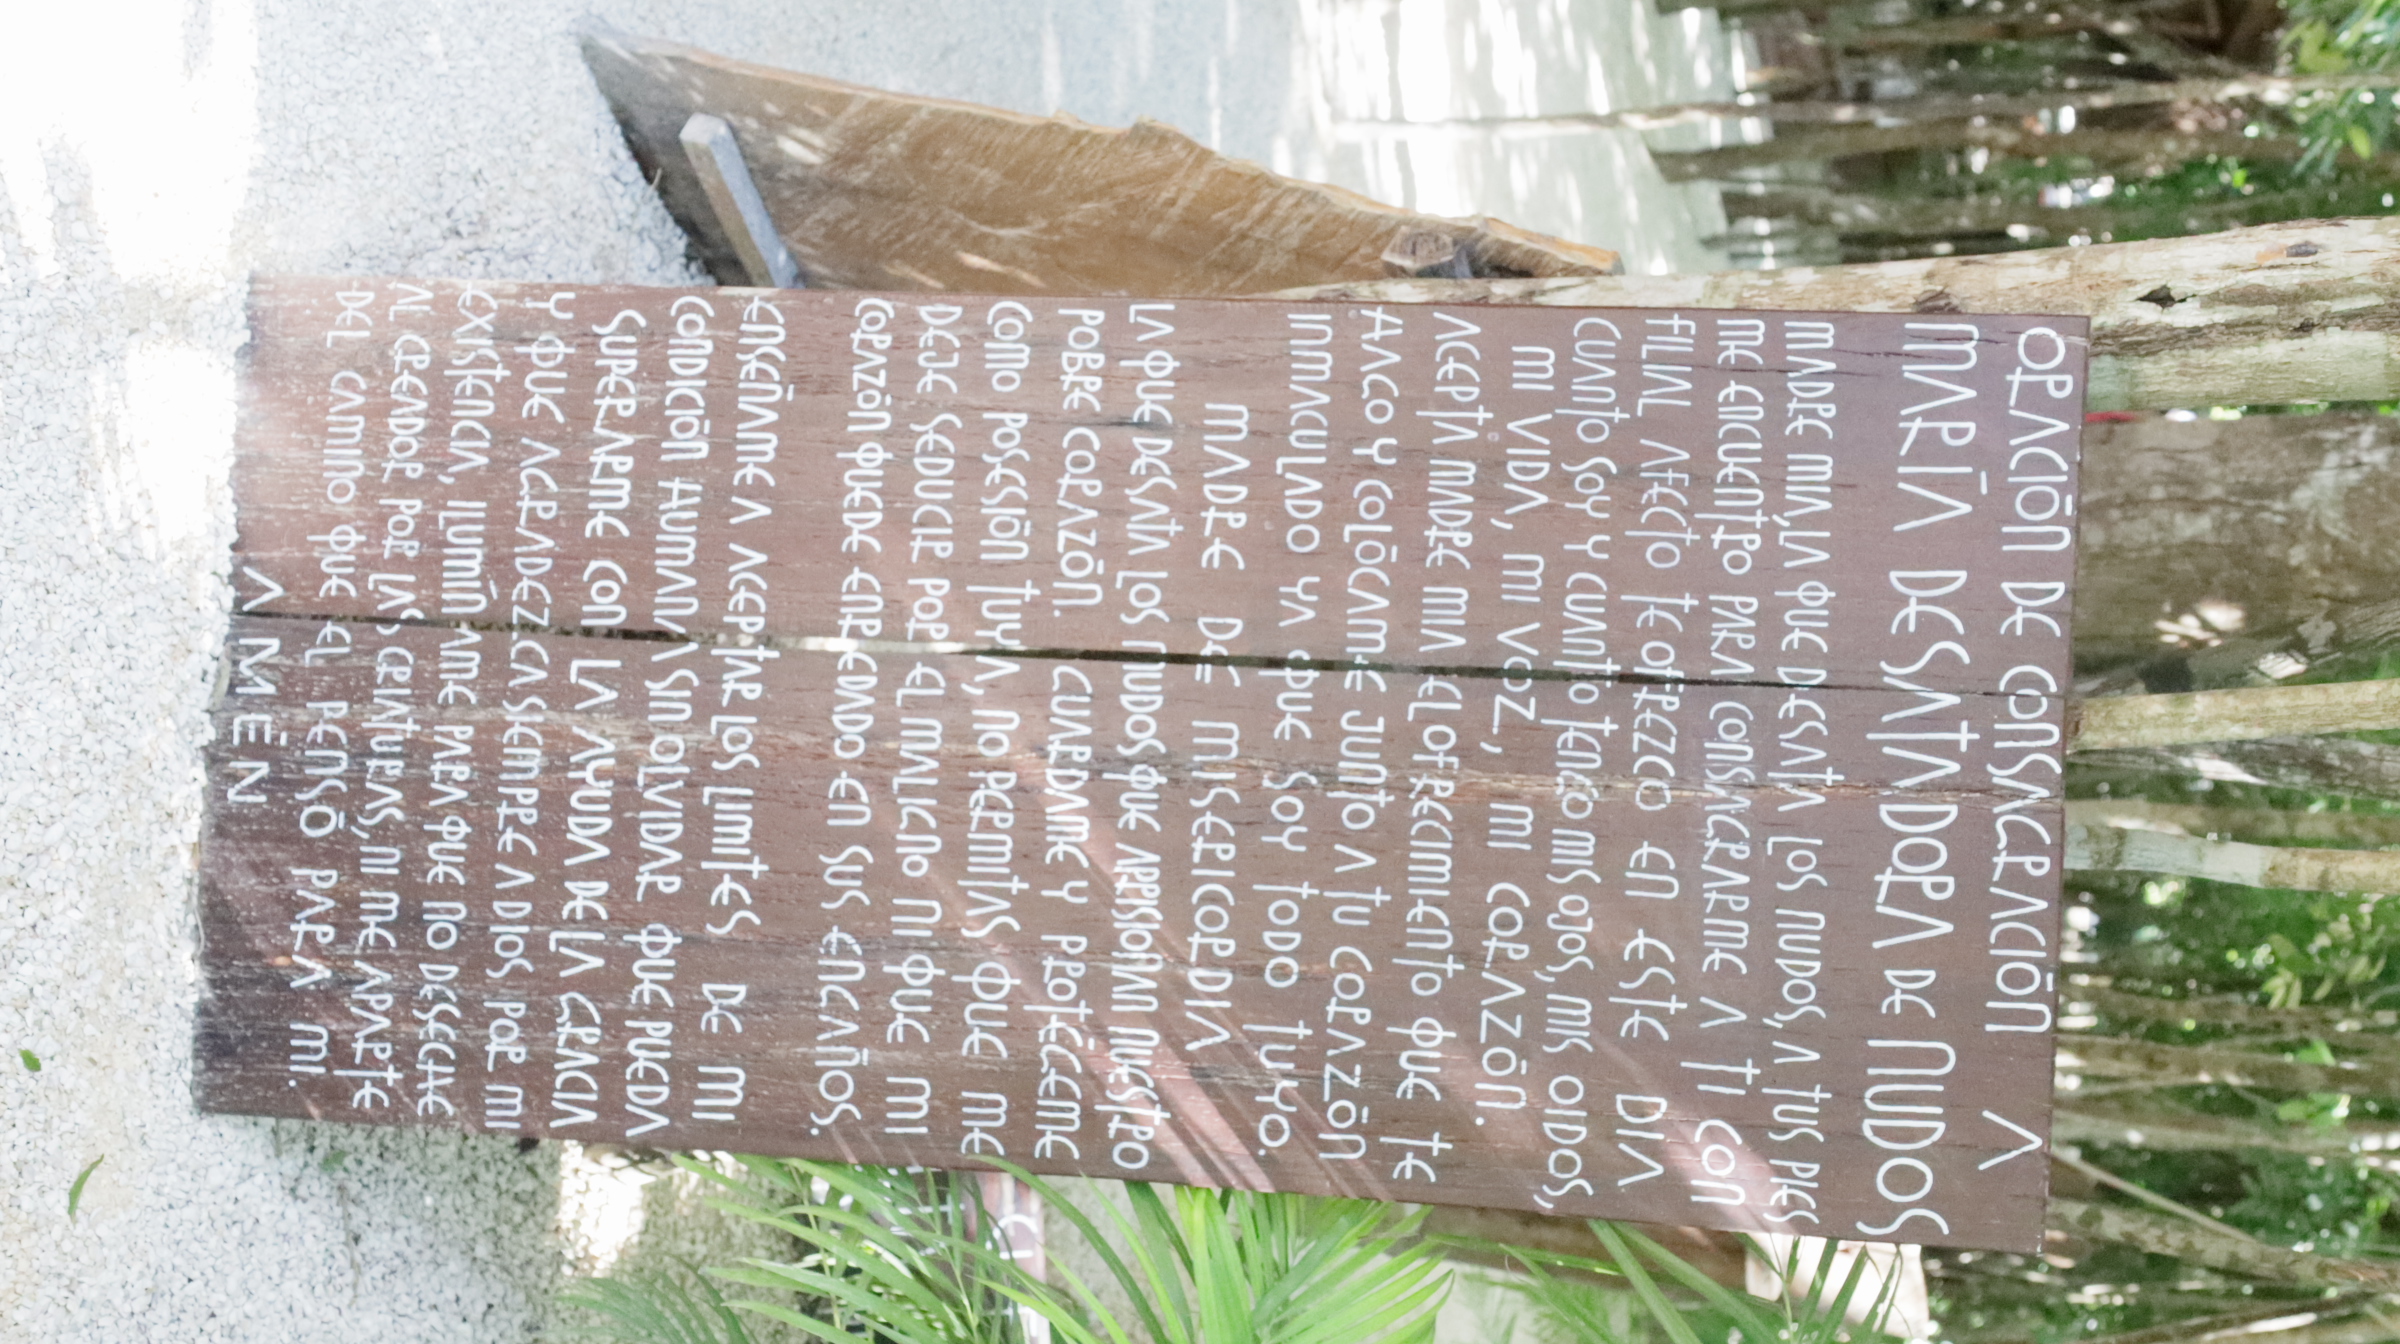 ORACIÓN DE CONSAGRACIÓN A
MARÍA DESATADORA DE NUDOS
MADRE MIA, LA QUE DESATA LOS NUDOS, A TUS PIES
ME ENCUENTRO PARA CONSAGRARME A TI CON
FILIAL AFECTO TE OFREZCO EN ESTE DIA
CUANTO SOY Y CUANTO TENGO MIS OJOS, MIS OIDOS,
MI VIDA, MI VOZ, MI CORAZÓN.
ACEPTA MADRE MIA EL OFRECIMIENTO QUE TE
HAGO Y COLÓCAME JUNTO A TU CORAZÓN
INMACULADO YA QUE SOY TODO TUYO.
MADRE DE MISERICORDIA
LA QUE DESATA LOS NUDOS QUE APRISIONAN NUESTRO
POBRE CORAZÓN. GUARDAME Y PROTÉGEME
COMO POSESIÓN TUYA, NO PERMITAS QUE ME
DEJE SEDUCIR POR EL MALIGNO NI QUE MI
CORAZÓN QUEDE ENREDADO EN SUS ENGAÑOS.
ENSEÑAME A ACEPTAR LOS LIMITES DE MI
CONDICIÓN HUMANA SIN OLVIDAR QUE PUEDA
SUPERARME CON LA AYUDA DE LA GRACIA
Y QUE AGRADEZCA SIEMPRE A DIOS POR MI
EXISTENCIA, ILUMÍNAME PARA QUE NO DESECHE
AL CREADOR POR LAS CRIATURAS, NI ME APARTE
DEL CAMINO QUE EL PENSÓ PARA MI.
AMÉN